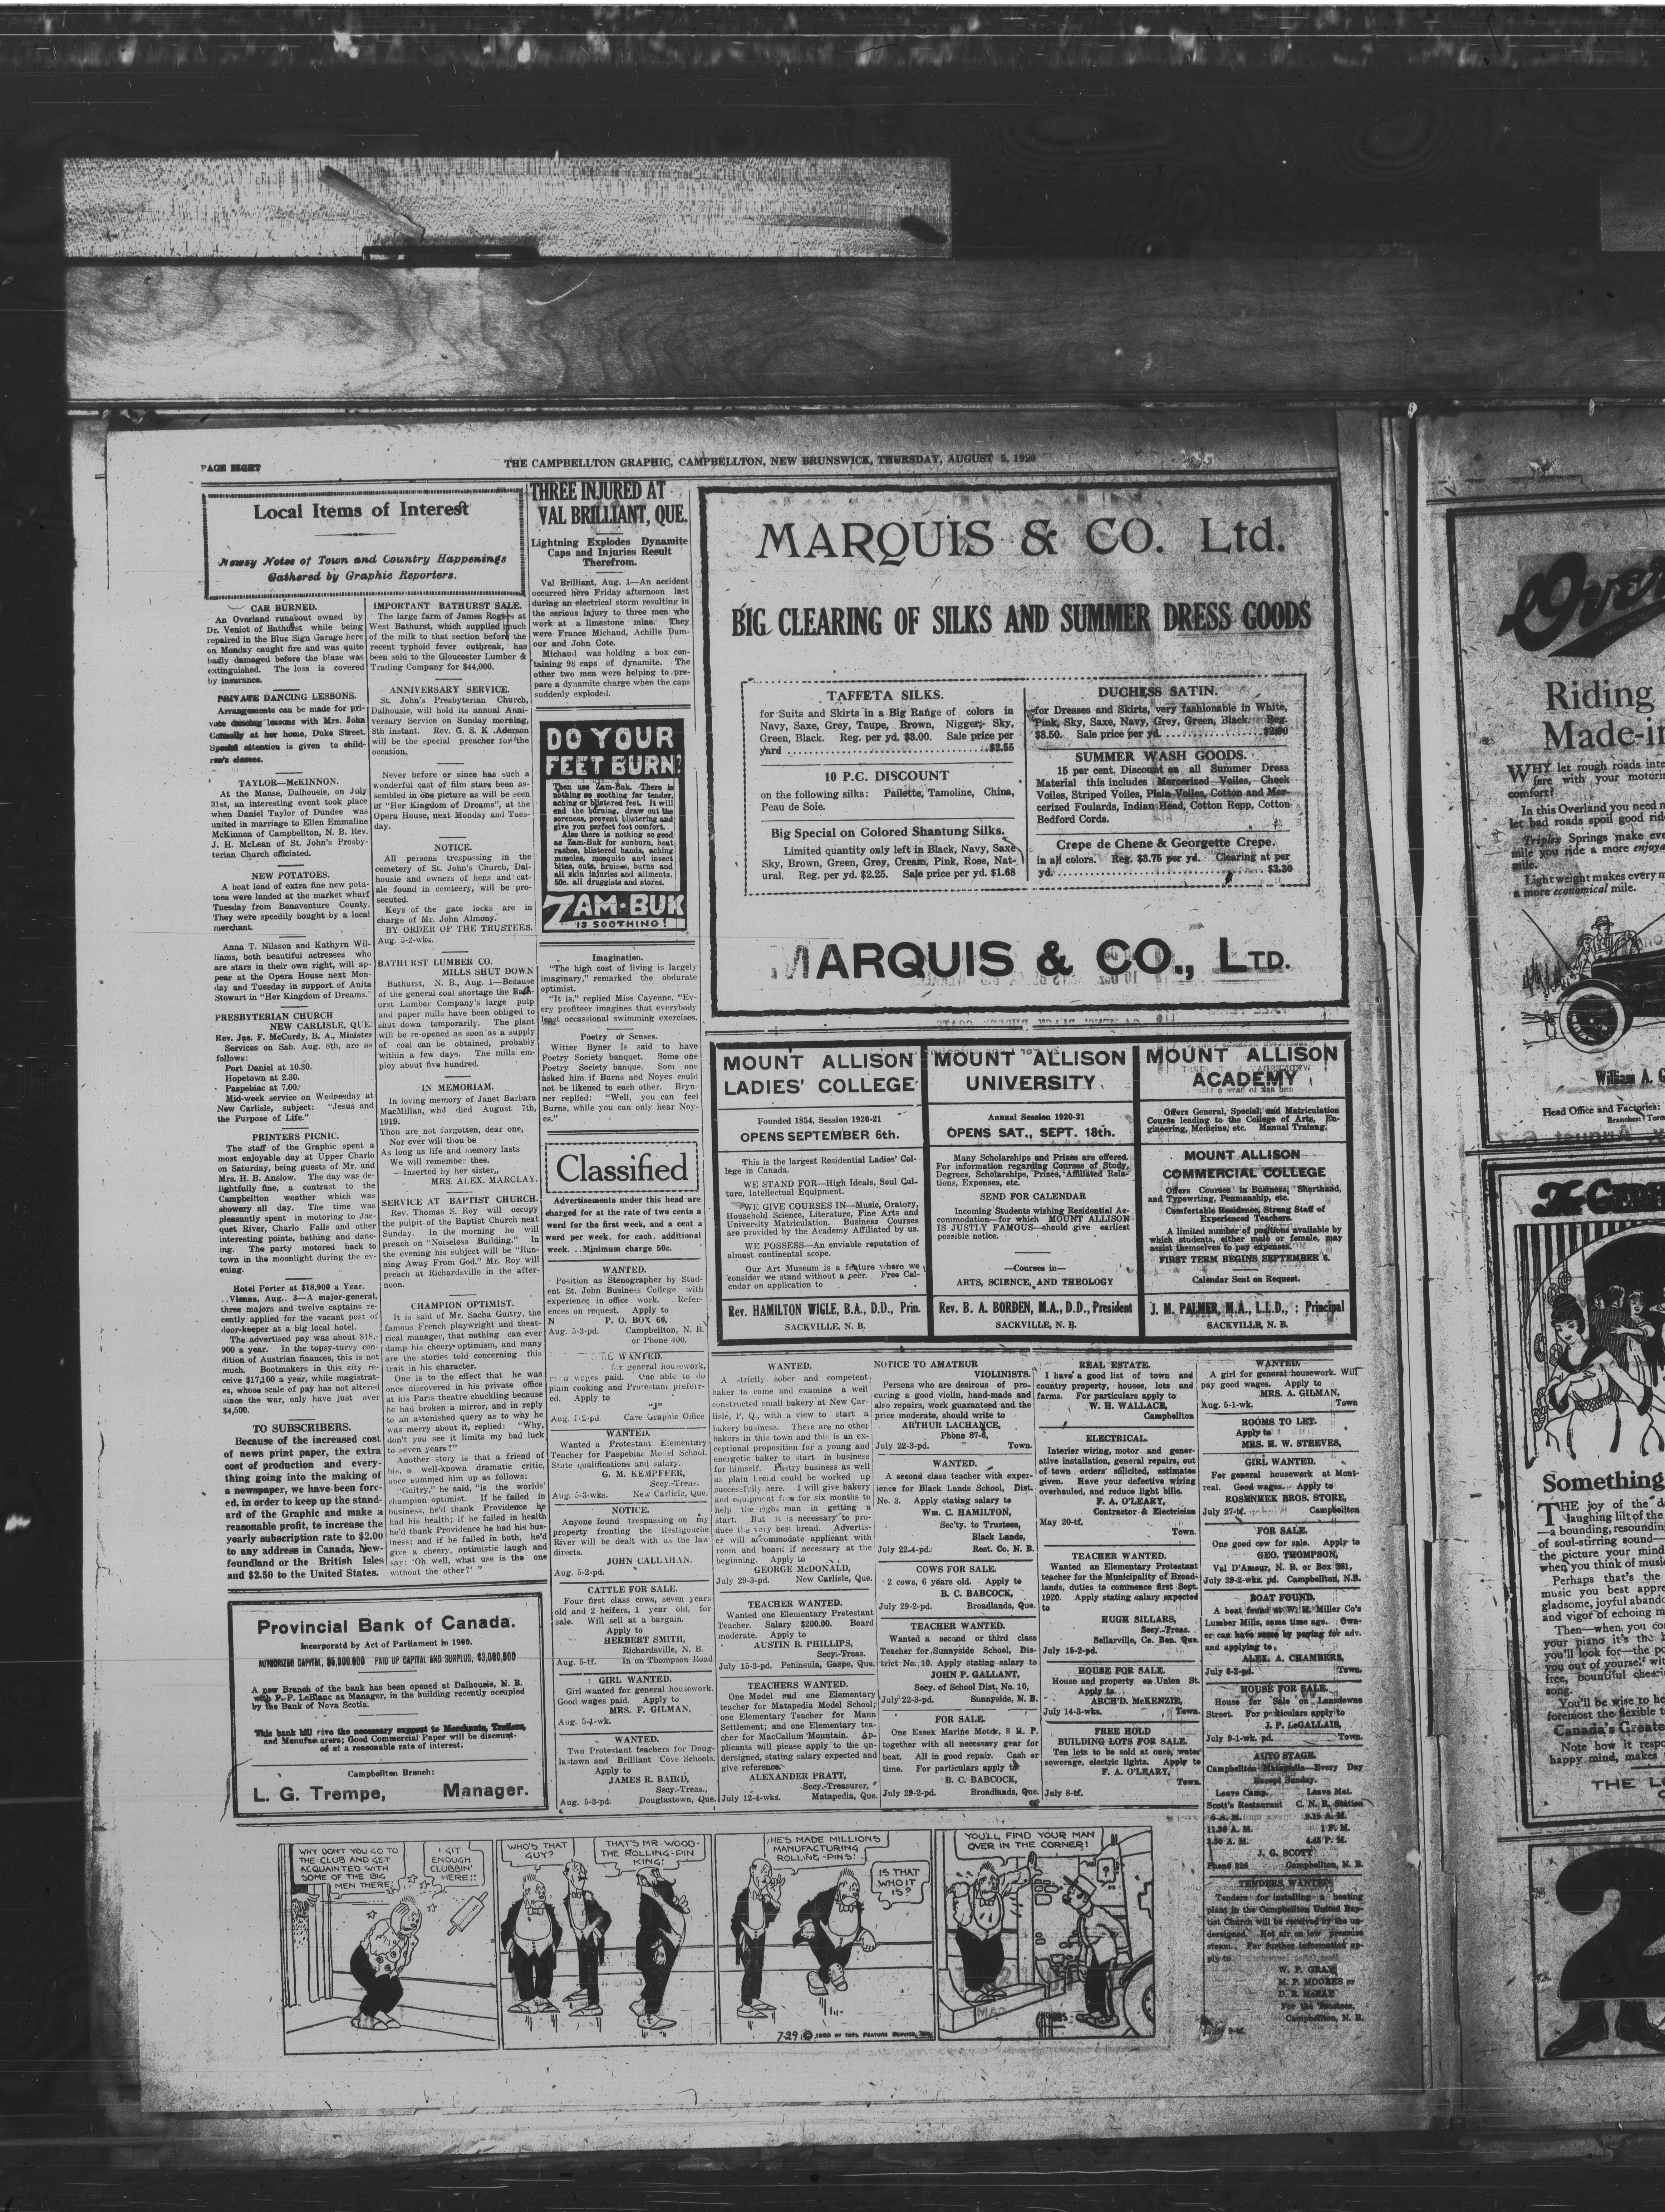 PAGE EIGHT
THE CAMPBELLTON GRAPHIC, CAMPBELLTON, NEW BRUNSWICK, THURSDAY, AUGUST 5, 1920
Local Items of Interest
Newsy Notes of Town and Country Happenings
Gathered by Graphic Reporters.
CAR BURNED.
An Overland runabout owned by
Dr. Veniot of Bathurst while being
repaired in the Blue Sign Garage here
on Monday caught fire and was quite
badly damaged before the blaze was
extinguished. The loss is covered
by insurance.
PRIVATE DANCING LESSONS.
Arrangements can be made for pri-
vate dancing lessons with Mrs. John
Connolly at her home, Duke Street.
Special attention is given to child-
ren's classes.
TAYLOR—McKINNON.
At the Manse, Dalhousie, on July
31st, an interesting event took place
when Daniel Taylor of Dundee was
united in marriage to Ellen Emmaline
McKinnon of Campbellton, N. B. Rev.
J. H. McLean of St. John's Presby-
terian Church officiated.
NEW POTATOES.
A boat load of extra fine new pota-
toes were landed at the market wharf
Tuesday from Bonaventure County.
They were speedily bought by a local
merchant.
Anna T. Nilsson and Kathyrn Wil-
liams, both beautiful actresses who
are stars in their own right, will ap-
pear at the Opera House next Mon-
day and Tuesday in support of Anita
Stewart in "Her Kingdom of Dreams."
PRESBYTERIAN CHURCH
NEW CARLISLE, QUE.
Rev. Jas. F. McCurdy, B. A., Minister
Services on Sab. Aug. 8th, are as
follows:
Port Daniel at 10.30.
Hopetown at 2.30.
Paspebiac at 7.00.
Mid-week service on Wednesday at
New Carlisle, subject: "Jesus and
the Purpose of Life."
PRINTERS PICNIC.
The staff of the Graphic spent a
most enjoyable day at Upper Charlo
on Saturday, being guests of Mr. and
Mrs. H. B. Anslow. The day was de-
lightfully fine, a contrast to the
Campbellton weather which was
showery all day. The time was
pleasantly spent in motoring to Jac-
quet River, Charlo Falls and other
interesting points, bathing and danc-
ing. The party motored back to
town in the moonlight during the ev-
ening.
Hotel Porter at $18,900 a Year.
..Vienna, Aug.. 3—A major-general,
three majors and twelve captains re-
cently applied for the vacant post of
door-keeper at a big local hotel.
The advertised pay was about $18,-
900 a year. In the topsy-turvy con-
dition of Austrian finances, this is not
much. Bootmakers in this city re-
ceive $17,100 a year, while magistrat-
es, whose scale of pay has not altered
since the war, only have just over
$4,500.
TO SUBSCRIBERS.
Because of the increased cost
of news print paper, the extra
cost of production and every-
thing going into the making of
a newspaper, we have been forc-
ed, in order to keep up the stand-
ard of the Graphic and make a
reasonable profit, to increase the
yearly subscription rate to $2.00
to any address in Canada, New-
foundland or the British Isles
and $2.50 to the United States.
IMPORTANT BATHURST SALE.
The large farm of James Rogers at
West Bathurst, which supplied much
of the milk to that section before the
recent typhoid fever outbreak, has
been sold to the Gloucester Lumber &
Trading Company for $44,000.
ANNIVERSARY SERVICE.
St. John's Presbyterian Church,
Dalhousie, will hold its annual Anni-
versary Service on Sunday morning,
8th instant. Rev. G. S. K .Aderson
will be the special preacher for the
occasion.
Never before or since has such a
wonderful cast of film stars been as-
sembled in one picture as will be seen
in "Her Kingdom of Dreams", at the
Opera House, next Monday and Tues-
day.
NOTICE.
All persons trespassing in the
cemetery of St. John's Church, Dal-
housie and owners of hens and cat-
ale found in cemteery, will be pro-
secuted.
Keys of the gate locks are in
charge of Mr. John Almony.
BY ORDER OF THE TRUSTEES.
Aug. 5-2-wks.
BATHURST LUMBER CO.
MILLS SHUT DOWN
Bathurst, N. B., Aug. 1—Because
of the general coal shortage the Bath-
urst Lumber Company's large pulp
and paper mills have been obliged to
shut down temporarily. The plant
will be re-opened as soon as a supply
of coal can be obtained, probably
within a few days. The mills em-
ploy about five hundred.
IN MEMORIAM.
In loving memory of Janet Barbara
MacMillan, who died August 7th,
1919.
Thou are not forgotten, dear one,
Nor ever will thou be
As long as life and memory lasts
We will remember thee.
—Inserted by her sister,,
MRS. ALEX. MARCLAY.
SERVICE AT BAPTIST CHURCH.
Rev. Thomas S. Roy will occupy
the pulpit of the Baptist Church next
Sunday. In the morning he will
preach on "Noiseless Building." In
the evening his subject will be "Run-
ning Away From God." Mr. Roy will
preach at Richardsville in the after-
noon.
CHAMPION OPTIMIST.
It is said of Mr. Sacha Guitry, the
famous French playwright and theat-
rical manager, that nothing can ever
damp his cheery optimism, and many
are the stories told concerning this
trait in his character.
One is to the effect that he was
once discovered in his private office
at his Paris theatre chuckling because
he had broken a mirror, and in reply
to an astonished query as to why he
was merry about it, replied: "Why,
don't you see it limits my bad luck
to seven years?"
Another story is that a friend of
his, a well-known dramatic critic,
once summed him up as follows:
"Guitry," he said, "is the worlds'
champion optimist. If he failed in
business, he'd thank Providence he
had his health; if he failed in health
he'd thank Providence he had his bus-
iness; and if he failed in both, he'd
give a cheery, optimistic laugh and
say: 'Oh well, what use is the one
without the other?' "
Provincial Bank of Canada.
Incorporatd by Act of Parliament in 1900.
AUTHORIZED CAPITAL, $5,000,000 PAID UP CAPITAL AND SURPLUS, $3,000,000
A new Branch of the bank has been opened at Dalhousie, N. B.
with P. P. LeBlanc as Manager, in the building recently occupied
by the Bank of Nova Scotia.
This bank bill give the necessary support to Merchants, Traders,
and Manufacturers; Good Commercial Paper will be discount-
ed at a reasonable rate of interest.
Campbellton Branch:
L. G. Trempe, Manager.
THREE INJURED AT
VAL BRILLIANT, QUE.
Lightning Explodes Dynamite
Caps and Injuries Result
Therefrom.
Val Brilliant, Aug. 1—An accident
occurred here Friday afternoon last
during an electrical storm resulting in
the serious injury to three men who
work at a limestone mine. They
were France Michaud, Achille Dam-
our and John Cote.
Michaud was holding a box con-
taining 98 caps of dynamite. The
other two men were helping to pre-
pare a dynamite charge when the caps
suddenly exploded.
DO YOUR
FEET BURN?
Then use Zam-Buk. There is
nothing so soothing for tender,
aching or blistered feet. It will
end the burning, draw out the
soreness, prevent blistering and
give you perfect foot comfort.
Also there is nothing so good
as Zam-Buk for sunburn, heat
rashes, blistered hands, aching
muscles, mosquito and insect
bites, cuts, bruises, burns and
all skin injuries and ailments.
50c. all druggists and stores.
ZAM-BUK
IS SOOTHING!
Imagination.
"The high cost of living is largely
imaginary," remarked the obdurate
optimist.
"It is," replied Miss Cayenne, "Ev-
ery profiteer imagines that everybody
least occassional swimming exercises.
Poetry or Senses.
Witter Byner is said to have
Poetry Society banquet. Some one
Poetry Society banque. Som one
asked him if Burns and Noyes could
not be likened to each other. Bryn-
ner replied: "Well, you can feel
Burns, while you can only hear Noy-
es."
Classified
Advertisements under this head are
charged for at the rate of two cents a
word for the first week, and a cent a
word per week. for each. additional
week. ..Minimum charge 50c.
WANTED.
Position as Stenographer by Stud-
ent St. John Business College with
experience in office work. Refer-
ences on request. Apply to
N P. O. BOX 60,
Aug. 5-3-pd. Campbellton, N. B.
or Phone 400.
WANTED.
for general housework,
wages paid. One able to do
plain cooking and Protestant preferr-
ed. Apply to
"J"
Care Graphic Office
WANTED.
Wanted a Protestant Elementary
Teacher for Paspebiac Model School.
State qualifications and salary.
G. M. KEMPFFER,
Secy.-Treas.
Aug. 5-3-wks. New Carlisle, Que.
NOTICE.
Anyone found trespassing on my
property fronting the Restigouche
River will be dealt with as the law
directs.
JOHN CALLAHAN.
Aug. 5-2-pd.
CATTLE FOR SALE.
Four first class cows, seven years
old and 2 heifers, 1 year old, for
sale. Will sell at a bargain.
Apply to
HERBERT SMITH,
Richardsville, N. B.
Aug. 5-tf. In on Thompson Road
GIRL WANTED.
Girl wanted for general housework.
Good wages paid. Apply to
MRS. F. GILMAN,
Aug. 5-1-wk.
WANTED.
Two Protestant teachers for Doug-
lastown and Brilliant Cove Schools.
Apply to
JAMES R. BAIRD,
Secy.-Treas.,
Aug. 5-3-pd. Douglastown, Que.
MARQUIS & CO. Ltd.
BIG CLEARING OF SILKS AND SUMMER DRESS GOODS
TAFFETA SILKS.
for Suits and Skirts in a Big Range of colors in
Navy, Saxe, Grey, Taupe, Brown, Nigger, Sky,
Green, Black. Reg. per yd. $3.00. Sale price per
yard ........ $2.55
10 P.C. DISCOUNT
on the following silks: Pailette, Tamoline, China,
Peau de Soie.
Big Special on Colored Shantung Silks.
Limited quantity only left in Black, Navy, Saxe
Sky, Brown, Green, Grey, Cream, Pink, Rose, Nat-
ural. Reg. per yd. $2.25. Sale price per yd. $1.68
DUCHESS SATIN.
for Dresses and Skirts, very fashionable in White,
Pink, Sky, Saxe, Navy, Grey, Green, Black. Reg.
$3.50. Sale price per yd. ........
SUMMER WASH GOODS.
15 per cent. Discount on all Summer Dress
Material this includes Mercerized Voiles, Check
Voiles, Striped Voiles, Plain Voiles, Cotton and Mer-
cerized Foulards, Indian Head, Cotton Repp, Cotton
Bedford Cords.
Crepe de Chene & Georgette Crepe.
in all colors. Reg. $3.75 per yd. Clearing at per
yd. ........ $2.30
MARQUIS & CO., LTD.
MOUNT ALLISON
LADIES' COLLEGE
Founded 1854, Session 1920-21
OPENS SEPTEMBER 6th.
This is the largest Residential Ladies' Col-
lege in Canada.
WE STAND FOR—High Ideals, Soul Cul-
ture, Intellectual Equipment.
WE GIVE COURSES IN—Music, Oratory,
Household Science, Literature, Fine Arts and
University Matriculation. Business Courses
are provided by the Academy Affiliated by us.
WE POSSESS—An enviable reputation of
almost continental scope.
Our Art Museum is a feature where we
consider we stand without a peer. Free Cal-
endar on application to
Rev. HAMILTON WIGLE, B.A., D.D., Prin.
SACKVILLE, N. B.
MOUNT ALLISON
UNIVERSITY
Annual Session 1920-21
OPENS SAT., SEPT. 18th.
Many Scholarships and Prizes are offered.
For information regarding Courses of Study,
Degrees, Scholarships, Prizes, Affiliated Rela-
tions, Expenses, etc.
SEND FOR CALENDAR
Incoming Students wishing Residential Ac-
commodation—for which MOUNT ALLISON
IS JUSTLY FAMOUS—should give earliest
possible notice.
—Courses in—
ARTS, SCIENCE, AND THEOLOGY
Rev. B. A. BORDEN, M.A., D.D., President
SACKVILLE, N. B.
MOUNT ALLISON
ACADEMY
Offers General, Special, and Matriculation
Course leading to the College of Arts, En-
gineering, Medicine, etc. Manual Trainng.
MOUNT ALLISON
COMMERCIAL COLLEGE
Offers Courses in Business, Shorthand,
and Typewrting, Penmanship, etc.
Comfortable Residence, Strong Staff of
Experienced Teachers.
A limited number of positions available by
which students, either male or female, may
assist themselves to pay expenses.
FIRST TERM BEGINS SEPTEMBER 6.
Calendar Sent on Request.
J. M. PALMER, M.A., L.L.D., : Principal
SACKVILLE, N. B.
WANTED.
A strictly sober and competent
baker to come and examine a well
constructed small bakery at New Car-
lisle, P. Q., with a view to start a
bakery business. There are no other
bakers in this town and this is an ex-
ceptional proposition for a young and
energetic baker to start in business
for himself. Pastry business as well
as plain bread could be worked up
successfully here. I will give bakery
and equipment free for six months to
help the right man in getting a
start. But it is necessary to pro-
duce the very best bread. Advertis-
er will accommodate applicant with
room and board if necessary at the
beginning. Apply to
GEORGE McDONALD,
July 29-3-pd. New Carlisle, Que.
TEACHER WANTED.
Wanted one Elementary Protestant
Teacher. Salary $200.00. Board
moderate. Apply to
AUSTIN B. PHILLIPS,
Secy.-Treas.
July 15-3-pd. Peninsula, Gaspe, Que.
TEACHERS WANTED.
One Model and one Elementary
teacher for Matapedia Model School;
one Elementary Teacher for Mann
Settlement; and one Elementary tea-
cher for MacCallum Mountain. Ap-
plicants will please apply to the un-
dersigned, stating salary expected and
give reference.
ALEXANDER PRATT,
Secy.-Treasurer,
July 12-4-wks. Matapedia, Que.
NOTICE TO AMATEUR
VIOLINISTS.
Persons who are desirous of pro-
curing a good violin, hand-made and
also repairs, work guaranteed and the
price moderate, should write to
ARTHUR LACHANCE,
Phone 87-6,
July 22-3-pd. Town.
WANTED.
A second class teacher with exper-
ience for Black Lands School, Dist.
No. 3. Apply stating salary to
Wm. C. HAMILTON,
Sec'ty. to Trustees,
Black Lands,
July 22-4-pd. Rest. Co. N. B.
COWS FOR SALE.
2 cows, 6 years old. Apply to
B. C. BABCOCK,
July 29-2-pd. Broadlands, Que.
TEACHER WANTED.
Wanted a second or third class
Teacher for Sunnyside School, Dis-
trict No. 10. Apply stating salary to
JOHN P. GALLANT,
Secy. of School Dist, No. 10,
July 22-3-pd. Sunnyside, N. B.
FOR SALE.
One Essex Marine Motor, 8 H. P.
together with all necessary gear for
boat. All in good repair. Cash or
time. For particulars apply to
B. C. BABCOCK,
July 29-2-pd. Broadlnads, Que.
REAL ESTATE.
I have a good list of town and
country property, houses, lots and
farms. For particulars apply to
W. H. WALLACE,
Campbellton
ELECTRICAL.
Interier wiring, motor and gener-
ative installation, general repairs, out
of town orders solicited, estimates
given. Have your defective wiring
overhauled, and reduce light bills.
F. A. O'LEARY,
Contractor & Electrician
May 20-tf. Town.
TEACHER WANTED.
Wanted an Elementary Protestant
teacher for the Municipality of Broad-
lands, duties to commence first Sept.
1920. Apply stating salary expected
to
HUGH SILLARS,
Secy.-Treas.
Sellarville, Co. Bon. Que.
July 15-2-pd.
HOUSE FOR SALE.
House and property on Union St.
Apply to
ARCH'D. McKENZIE,
July 14-3-wks. Town.
FREE HOLD
BUILDING LOTS FOR SALE.
Ten lots to be sold at once, water
sewerage, electric lights. Apply to
F. A. O'LEARY,
Town.
July 8-tf.
WANTED.
A girl for general housework. Will
pay good wages. Apply to
MRS. A. GILMAN,
Aug. 5-1-wk. Town
ROOMS TO LET.
Apply to
MRS. H. W. STREVES,
GIRL WANTED.
For general housework at Mont-
real. Good wages. Apply to
ROSENHEK BROS. STORE,
July 27-tf. Campbellton
FOR SALE.
One good cow for sale. Apply to
GEO. THOMPSON,
Val D'Amour, N. B. or Box 261,
July 29-2-wks. pd. Campbellton, N.B.
BOAT FOUND.
A boat found at W. H. Miller Co's
Lumber Mills, some time ago. Own-
er can have same by paying for adv.
and applying to
ALEX. A. CHAMBERS,
July 8-2-pd. Town.
HOUSE FOR SALE.
House for Sale on Lansdowne
Street. For particulars apply to
J. P. LeGALLAIS,
July 9-1-wk. pd. Town.
AUTO STAGE.
Campbellton Matapedia—Every Day
Except Sunday.
Leave Camp. Leave Mat.
Scott's Restaurant C. N. R. Station
8 A. M. 9.15 A. M.
11.30 A. M. 1 P. M.
3.30 A. M. 4.45 P. M.
J. G. SCOTT
Phone 826 Campbellton, N. B.
TENDERS WANTED
Tenders for installing a heating
plant in the Campbellton United Bap-
tist Church will be received by the un-
dersigned. Hot air on low pressure
steam. For further information ap-
ply to
W. P. GRAY
M. P. MOORES or
D. R. McRAE
For the Trustees,
Campbellton, N. B.
WHY DON'T YOU GO TO
THE CLUB AND GET
ACQUAINTED WITH
SOME OF THE BIG
MEN THERE
I GIT
ENOUGH
CLUBBIN'
HERE!!
WHO'S THAT
GUY?
THAT'S MR. WOOD-
THE ROLLING-PIN
KING!
HE'S MADE MILLIONS
MANUFACTURING
ROLLING-PINS!
IS THAT
WHO IT
IS?
7-29 © 1920 BY INT'L FEATURE SERVICE, INC.
YOU'LL FIND YOUR MAN
OVER IN THE CORNER!
Over
Riding
Made-in
WHY let rough roads inte
fere with your motori
comfort?
In this Overland you need n
let bad roads spoil good rid
Triplex Springs make eve
mile you ride a more enjoya
mile.
Light weight makes every m
a more economical mile.
William A. G
Head Office and Factories:
Branches: Toro
Something
THE joy of the d
laughing lilt of the
—a bounding, resoundin
of soul-stirring sound—
the picture your mind
when you think of music
Perhaps that's the
music you best appre
gladsome, joyful abando
and vigor of echoing m
Then—when you con
your piano it's the
you'll look for—the po
you out of yourself wit
free, bountiful cheeri
song.
You'll be wise to he
foremost the flexible t
Canada's Greate
Note how it respo
happy mind, makes
THE L
2